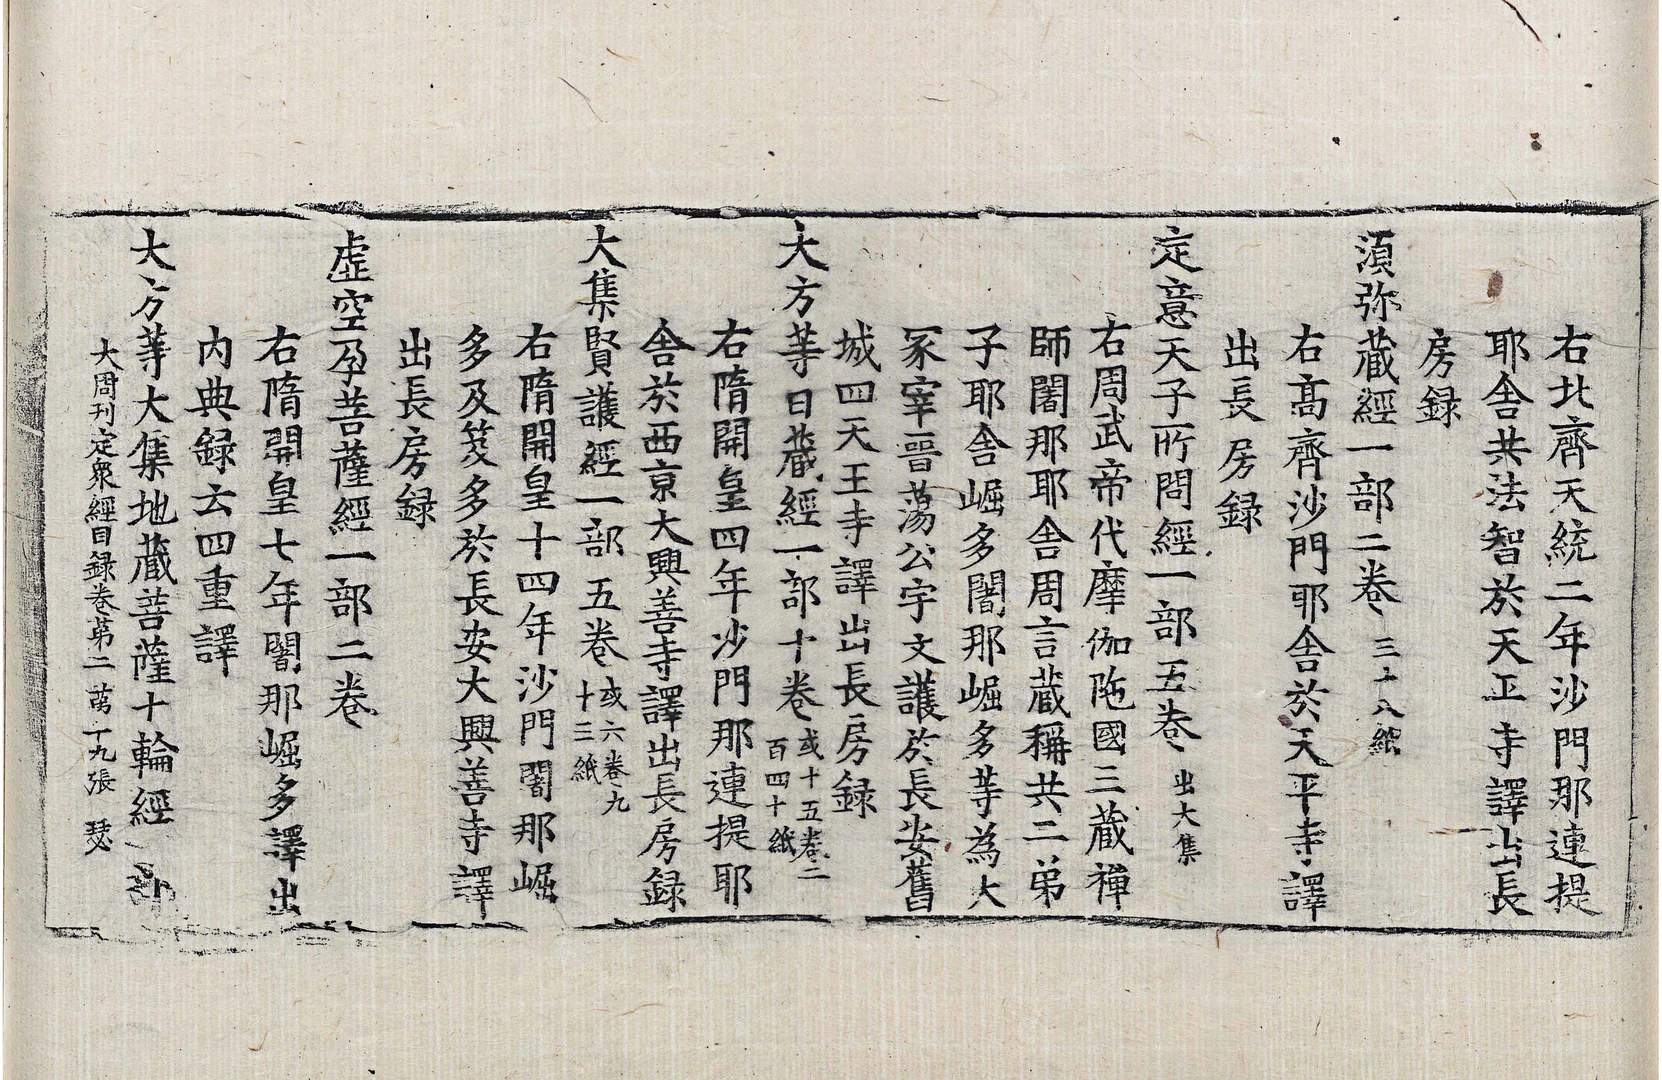 右北齊天統二年沙門那連提
耶舍共法智於天平寺譯出長
房録
湏弥藏經一部二卷 三十八紙
右髙齊沙門耶舍於天平寺譯
出長房録
定意天子所問經一部五卷 出大集
右周武帝代摩伽陁國三藏禪
師闍那耶舍周言藏稱共二弟
子耶舍崛多闍那崛多等為大
冢宰晉蕩公宇文護於長安舊
城四天王寺譯出長房録
大方等日藏經一部十卷 或十五卷二
百四十紙
右隋開皇四年沙門那連提耶
舍於西京大興善寺譯出長房録
大集賢護經一部五卷 或六卷九
十三紙
右隋開皇十四年沙門闍那崛
多及笈多於長安大興善寺譯
出長房録
虛空孕菩薩經一部二卷
右隋開皇七年闍那崛多譯出
内典録云四重譯
大方等大集地藏菩薩十輪經 部
大周刊定衆經目録卷苐二 苐十九張 瑟